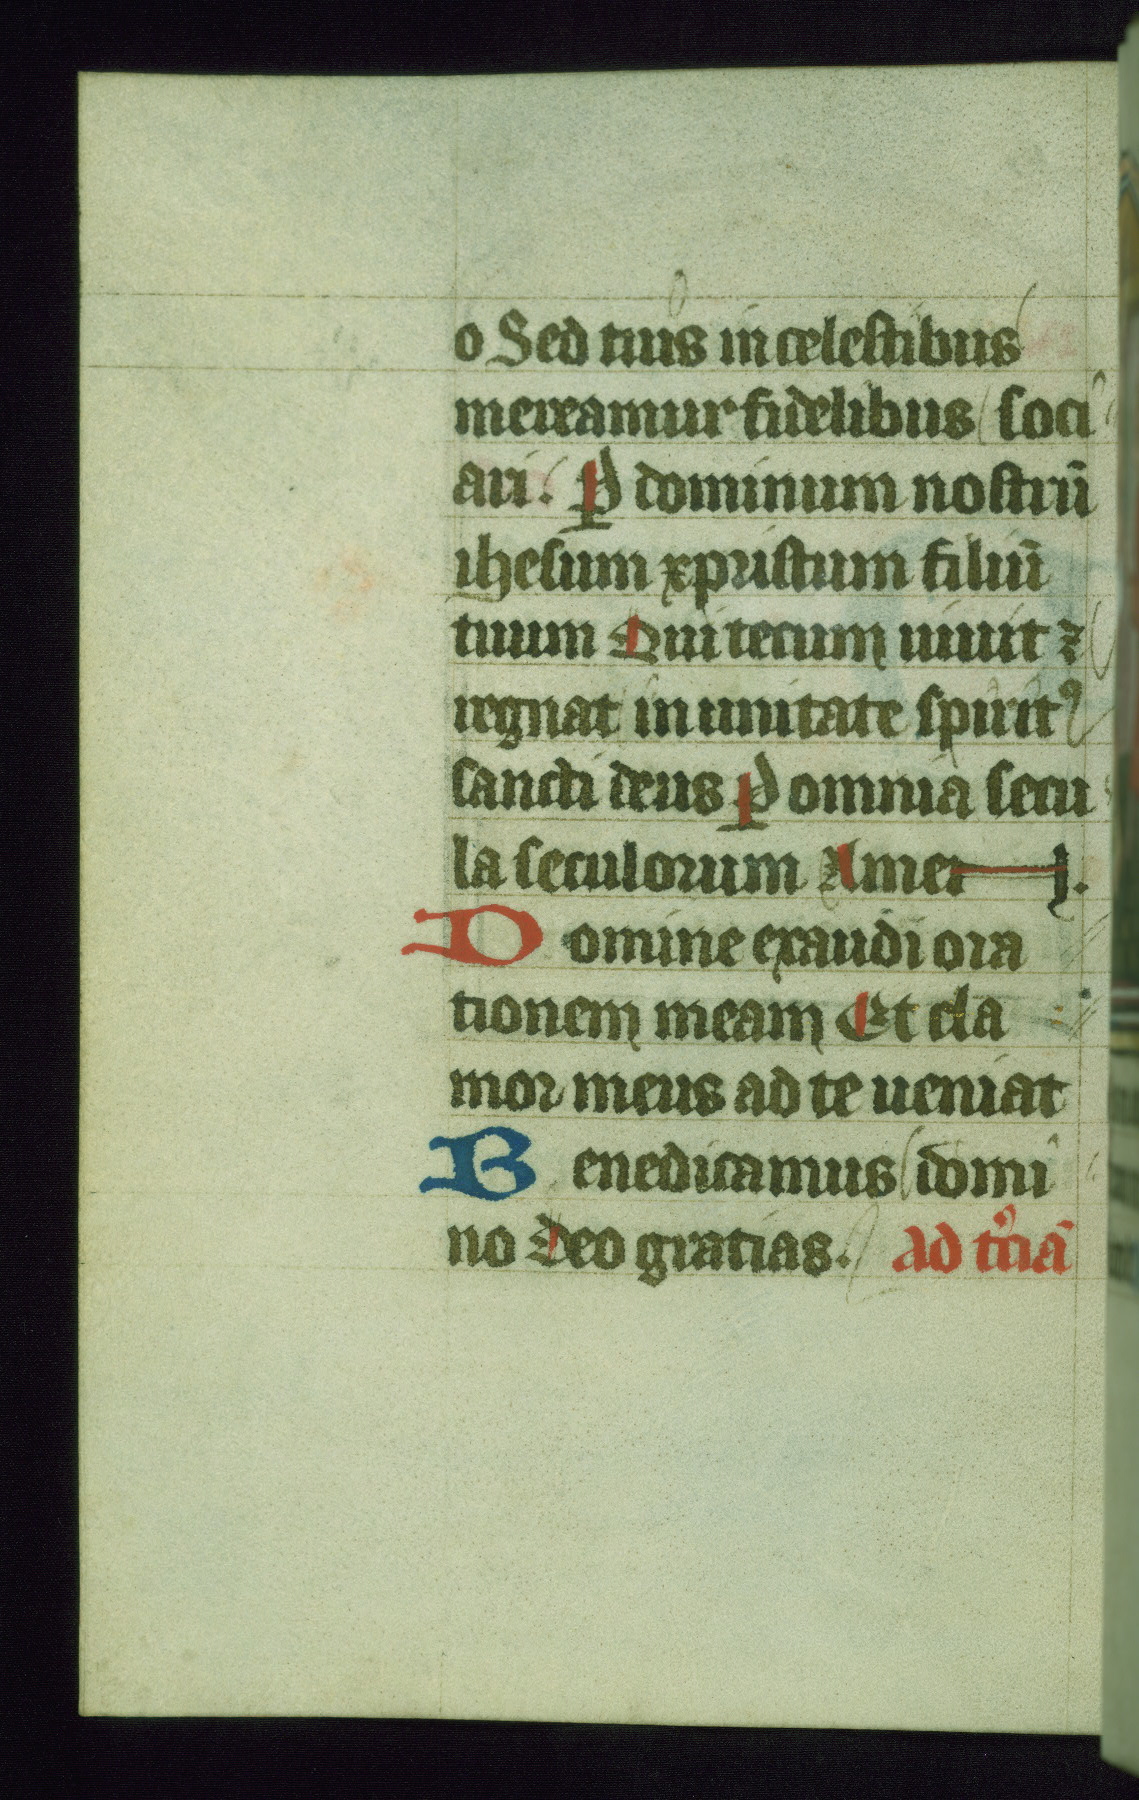 o Sed tuis in celestibus
mereamur fidelibus soci
ari. P dominum nostrū
ihesum xpristum filiū
tuum Qui tecum uiuit ⁊
regnat in unitate spiritꝰ
sancti deus P omnia secu
la seculorum Amen.
Domine exaudi ora
tionem meam Et cla
mor meus ad te ueniat
Benedicamus domi
no Deo gratias. ad t͛ciā